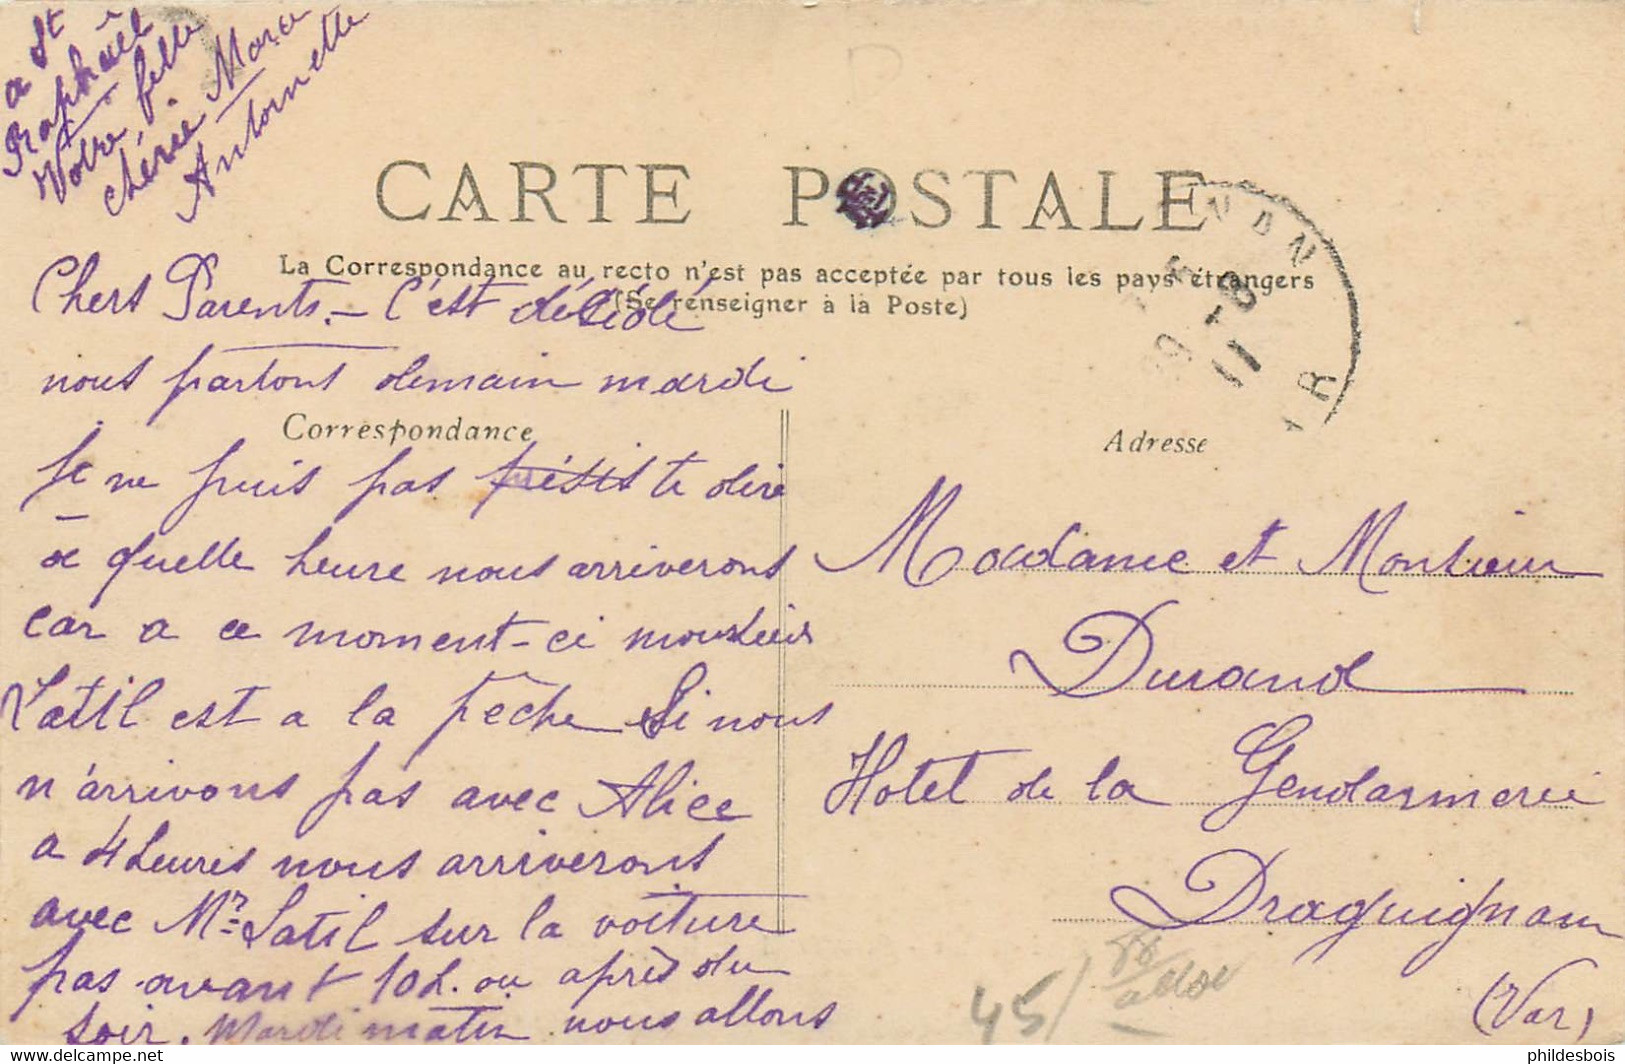 CARTE POSTALE
La Correspondance au recto n'est pas acceptée par tous les pays étrangers
(Se renseigner à la Poste)
Correspondance
Chers Parents. - C'est décidé
nous partons demain mardi
Je ne puis pas te dire
a quelle heure nous arriverons
car a ce moment-ci monsieur
Latil est a la pêche Si nous
n'arrivons pas avec Alice
a 4 heures nous arriverons
avec Mr Latil sur la voiture
pas avant 10 h. ou après du
soir. Mardi matin nous allons
a St
Raphaël
Votre fille
chérie Marie
Antoinette
Adresse
Madame et Monsieur
Durand
Hotel de la Gendarmerie
Draguignan
(Var)
9 - 8
11
45/
phildesbois